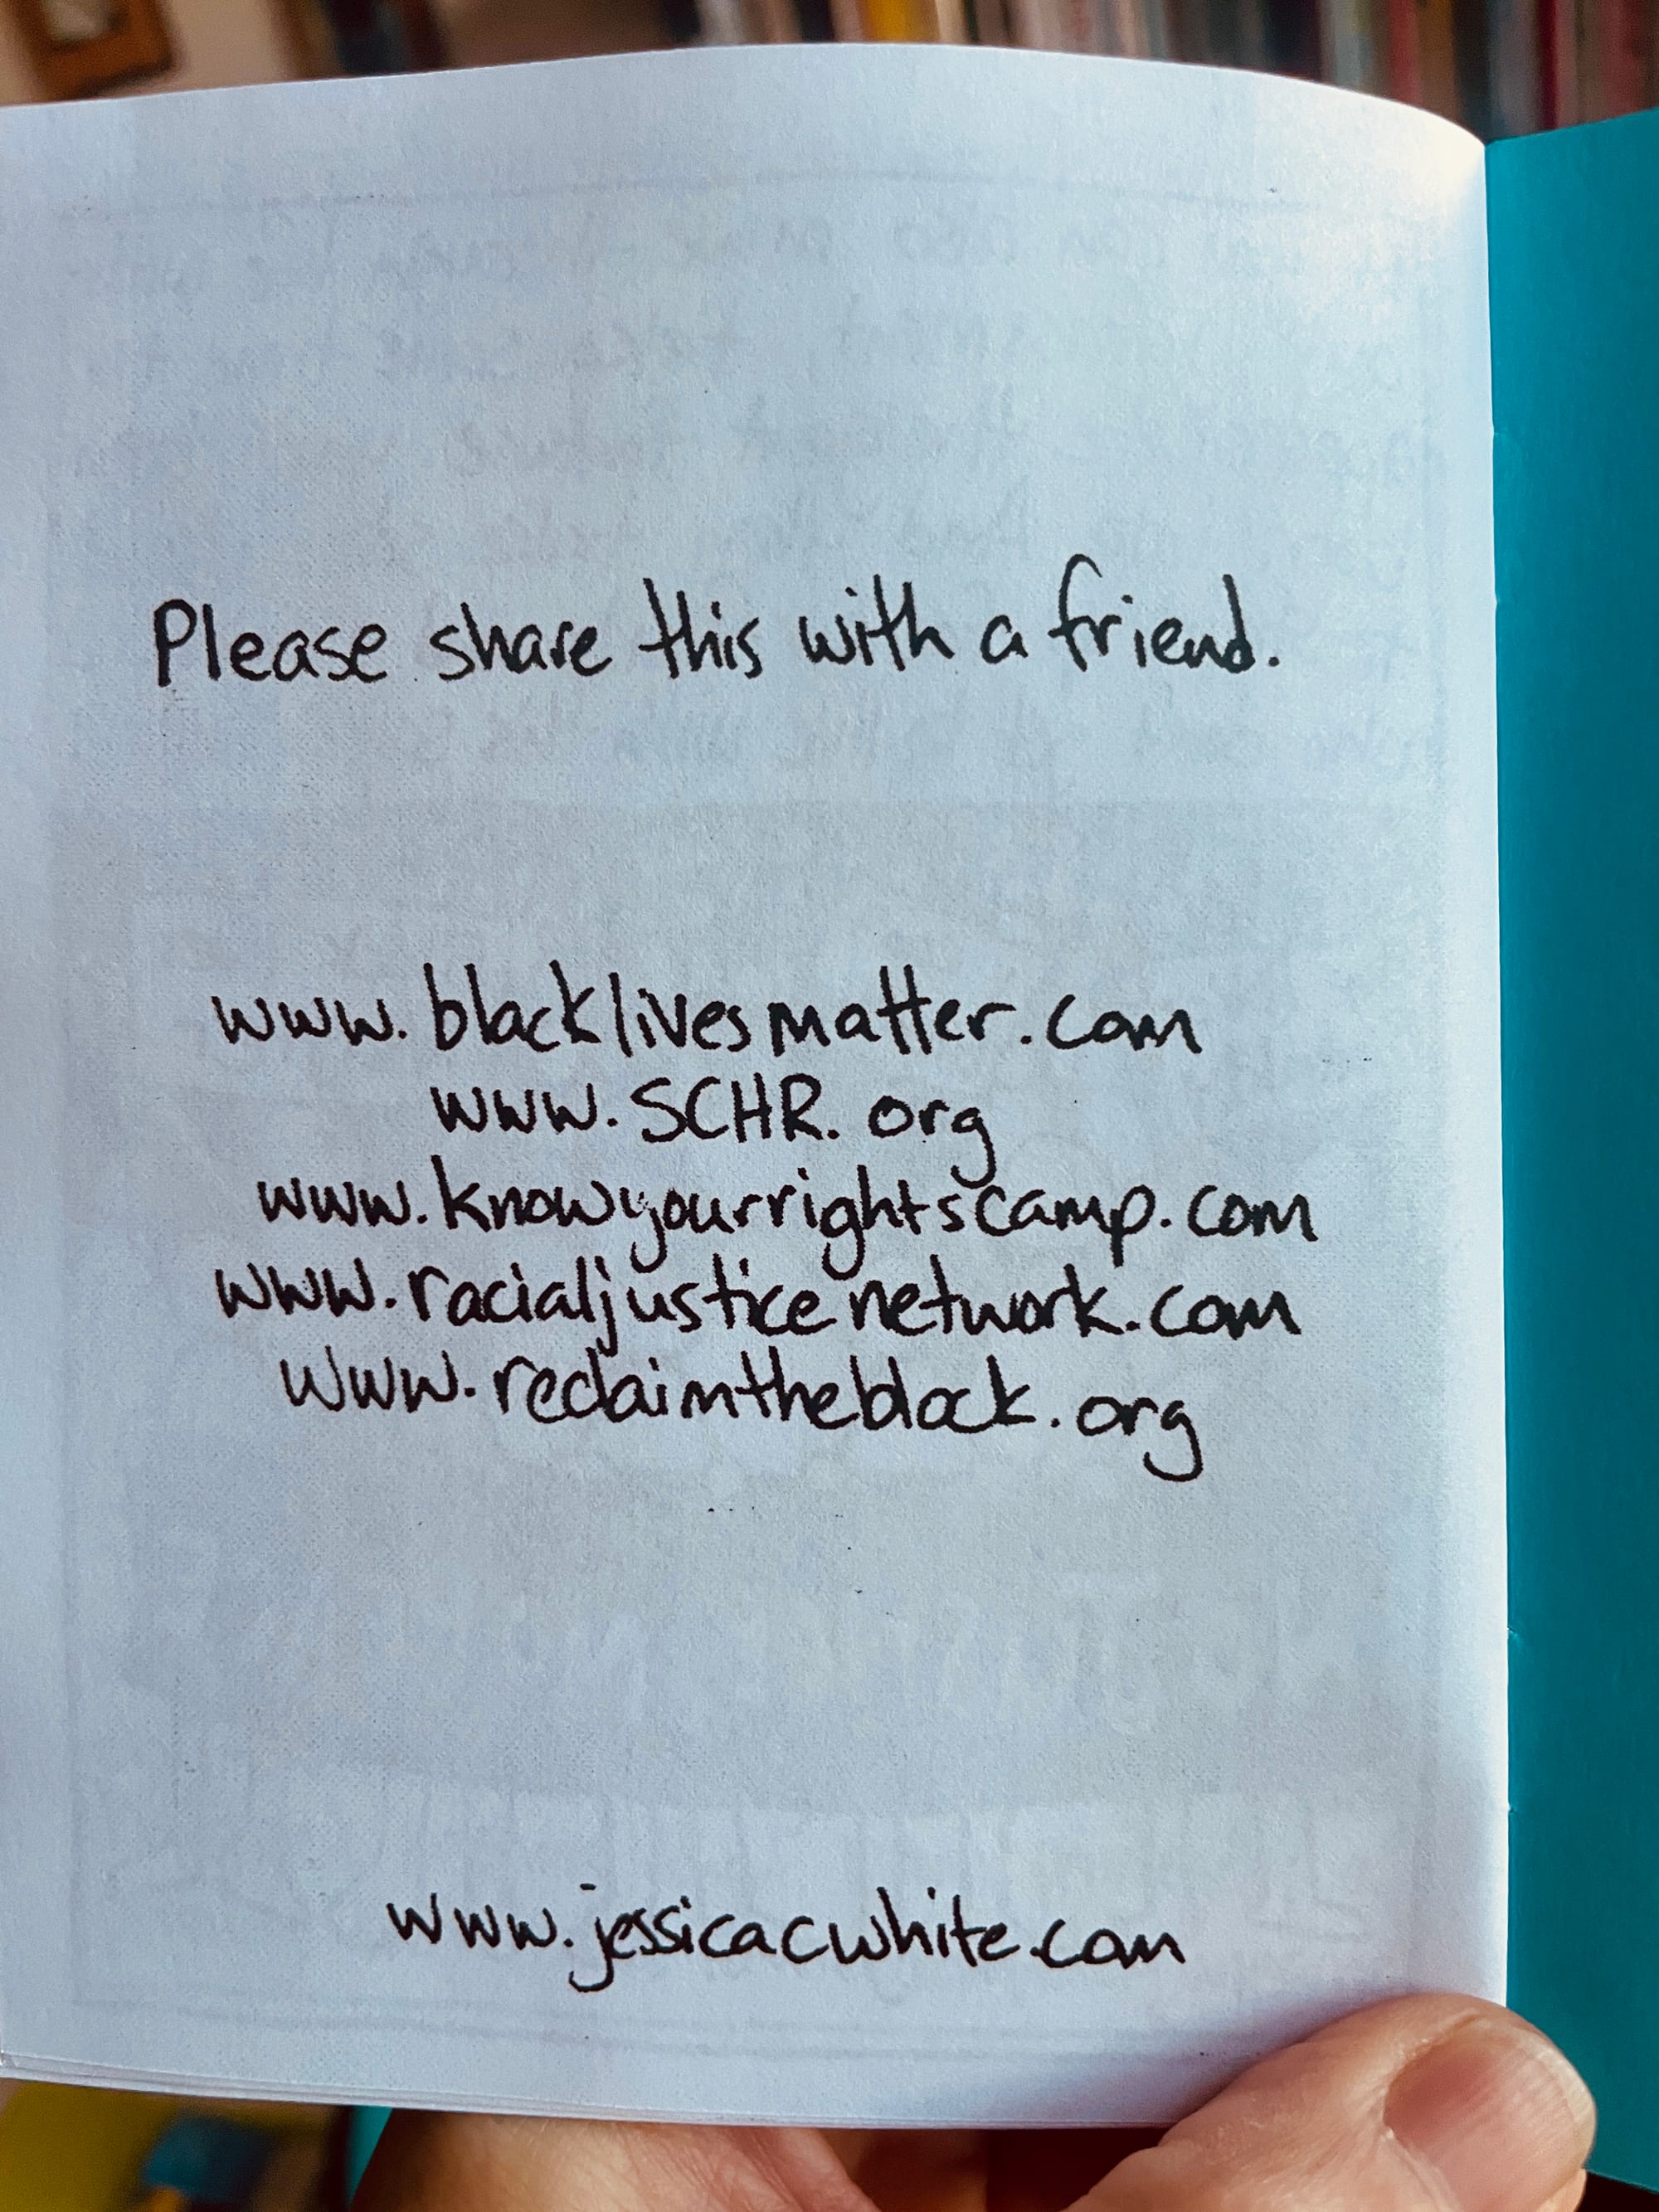 Please share this with a friend.
www.blacklivesmatter.com
www.SCHR.org
www.knowyourrightscamp.com
www.racialjusticenetwork.com
www.reclaimtheblock.org
www.jessicacwhite.com